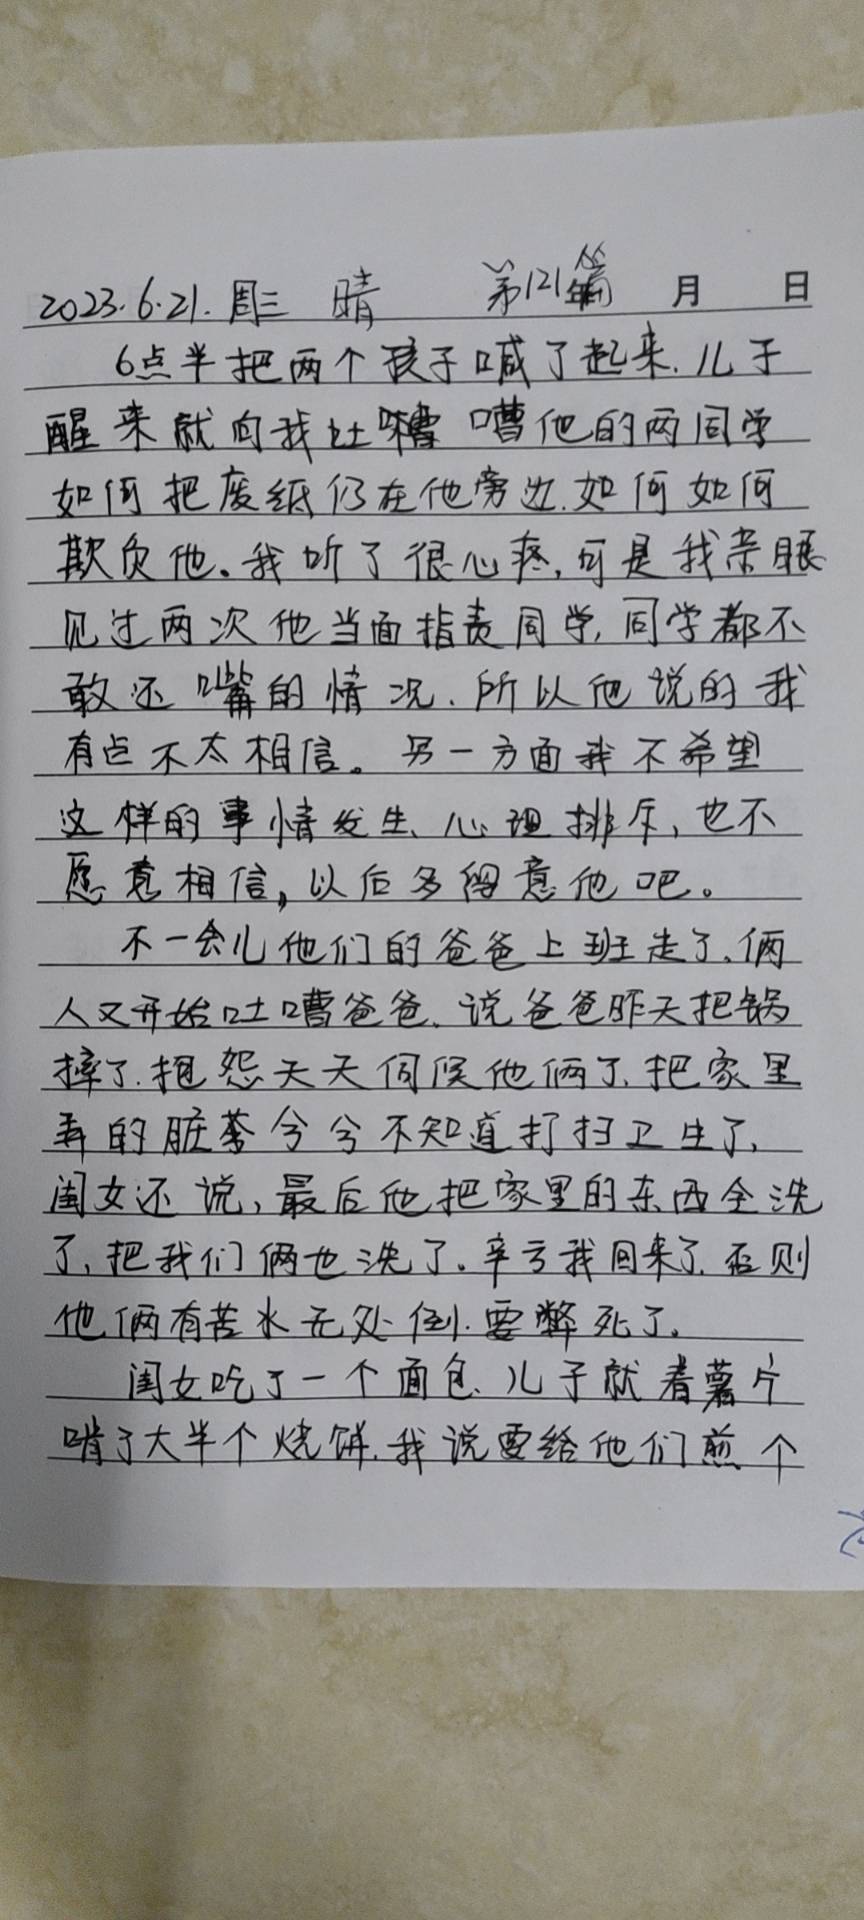 2023.6.21.周三 晴 第121篇 月 日
6点半把两个孩子喊了起来.儿子
醒来就向我吐嘈他的两同学
如何把废纸仍在他旁边.如何如何
欺负他。我听了很心疼,可是我亲眼
见过两次他当面指责同学,同学都不
敢还嘴的情况.所以他说的我
有点不太相信。另一方面我不希望
这样的事情发生、心理排斥,也不
愿意相信,以后多留意他吧。
不一会儿他们的爸爸上班走了.俩
人又开始吐嘈爸爸.说爸爸昨天把锅
摔了.抱怨天天伺候他俩了.把家里
弄的脏兮兮不知道打扫卫生了,
闺女还说,最后他把家里的东西全洗
了,把我们俩也洗了。辛亏我回来了.否则
他俩有苦水无处倒.要憋死了。
闺女吃了一个面包、儿子就着薯片
啃了大半个烧饼.我说要给他们煎个